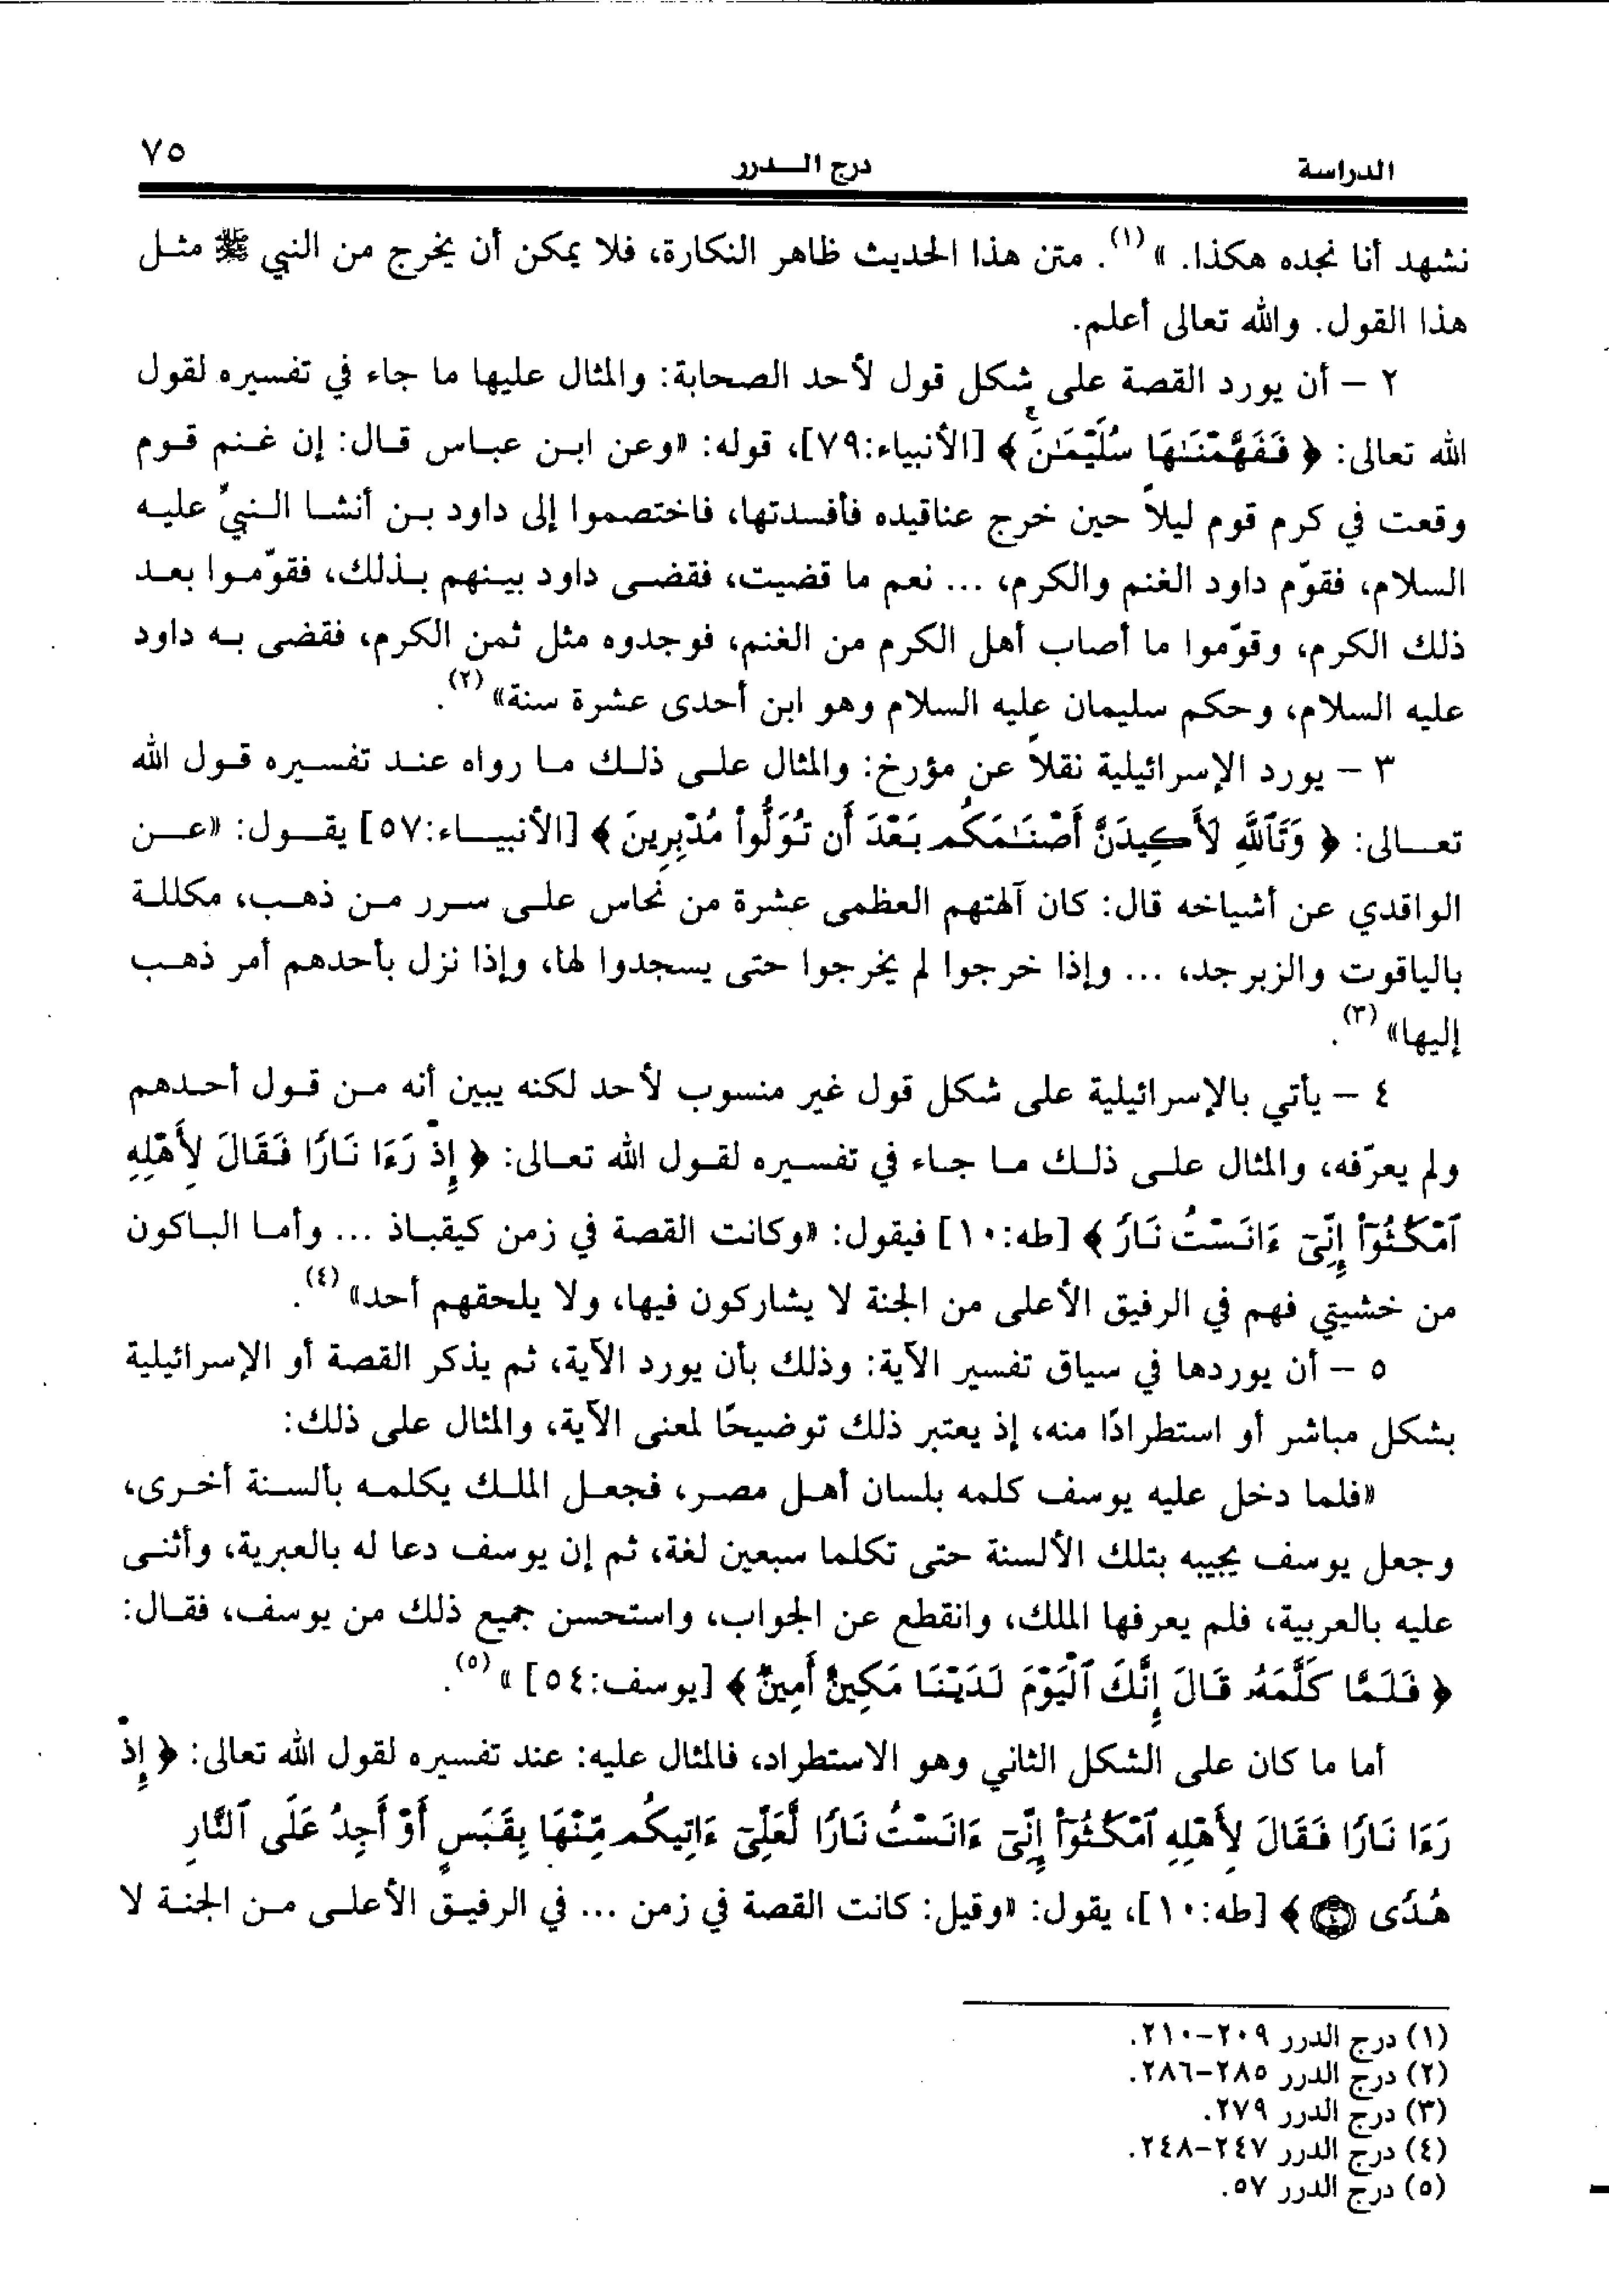 الدراسة درج الـــدرر ٧٥
نشهد أنا نجده هكذا. »(١). متن هذا الحديث ظاهر النكارة، فلا يمكن أن يخرج من النبي ﷺ مثـل
هذا القول. والله تعالى أعلم.
٢ – أن يورد القصة على شكل قول لأحد الصحابة: والمثال عليها ما جاء في تفسيره لقول
الله تعالى: ﴿ فَفَهَّمْنَـٰهَا سُلَيْمَـٰنَ ۚ ﴾ [الأنبياء:٧٩]، قوله: «وعن ابـن عبـاس قـال: إن غـنم قـوم
وقعت في كرم قوم ليلاً حين خرج عناقيده فأفسدتها، فاختصموا إلى داود بـن أنشـا الـنبيّ عليـه
السلام، فقوّم داود الغنم والكرم، ... نعم ما قضيت، فقضـى داود بيـنهم بـذلك، فقوّمـوا بعـد
ذلك الكرم، وقوّموا ما أصاب أهل الكرم من الغنم، فوجدوه مثل ثمن الكرم، فقضى بـه داود
عليه السلام، وحكم سليمان عليه السلام وهو ابن أحدى عشرة سنة» (٢).
٣ – يورد الإسرائيلية نقلاً عن مؤرخ: والمثال علـى ذلـك مـا رواه عنـد تفسـيره قـول الله
تعـــالى: ﴿ وَتَٱللَّهِ لَأَكِيدَنَّ أَصْنَـٰمَكُم بَعْدَ أَن تُوَلُّوا۟ مُدْبِرِينَ ﴾ [الأنبيـــاء:٥٧] يقـــول: «عـــن
الواقدي عن أشياخه قال: كان آلهتهم العظمى عشرة من نحاس علـى سـرر مـن ذهـب، مكللـة
بالياقوت والزبرجد، ... وإذا خرجوا لم يخرجوا حتى يسجدوا لها، وإذا نزل بأحدهم أمر ذهـب
إليها» (٣).
٤ – يأتي بالإسرائيلية على شكل قول غير منسوب لأحد لكنه يبين أنه مـن قـول أحـدهم
ولم يعرّفه، والمثال علـى ذلـك مـا جـاء في تفسـيره لقـول الله تعـالى: ﴿ إِذْ رَءَا نَارًا فَقَالَ لِأَهْلِهِ
ٱمْكُثُوٓا۟ إِنِّىٓ ءَانَسْتُ نَارً ﴾ [طه:١٠] فيقول: «وكانت القصة في زمن كيقبـاذ ... وأمـا البـاكون
من خشيتي فهم في الرفيق الأعلى من الجنة لا يشاركون فيها، ولا يلحقهم أحد» (٤).
٥ – أن يوردها في سياق تفسير الآية: وذلك بأن يورد الآية، ثم يذكر القصة أو الإسرائيلية
بشكل مباشر أو استطرادًا منه، إذ يعتبر ذلك توضيحًا لمعنى الآية، والمثال على ذلك:
«فلمـا دخـل عليه يوسف كلمه بلسان أهـل مصـر، فجعـل الملـك يكلمـه بألسـنة أخـرى،
وجعل يوسف يجيبه بتلك الألسنة حتى تكلما سبعين لغة، ثم إن يوسف دعا له بالعبرية، وأثنـى
عليه بالعربية، فلم يعرفها الملك، وانقطع عن الجواب، واستحسن جميع ذلك من يوسف، فقـال:
﴿ فَلَمَّا كَلَّمَهُۥ قَالَ إِنَّكَ ٱلْيَوْمَ لَدَيْنَا مَكِينٌ أَمِينٌ ﴾ [يوسف:٥٤] » (٥).
أما ما كان على الشكل الثاني وهو الاستطراد، فالمثال عليه: عند تفسيره لقول الله تعالى: ﴿ إِذْ
رَءَا نَارًا فَقَالَ لِأَهْلِهِ ٱمْكُثُوٓا۟ إِنِّىٓ ءَانَسْتُ نَارًا لَّعَلِّىٓ ءَاتِيكُم مِّنْهَا بِقَبَسٍ أَوْ أَجِدُ عَلَى ٱلنَّارِ
هُدًى ۝١٠ ﴾ [طه:١٠]، يقول: «وقيل: كانت القصة في زمن ... في الرفيـق الأعلـى مـن الجنـة لا
(١) درج الدرر ٢٠٩-٢١٠.
(٢) درج الدرر ٢٨٥-٢٨٦.
(٣) درج الدرر ٢٧٩.
(٤) درج الدرر ٢٤٧-٢٤٨.
(٥) درج الدرر ٥٧.